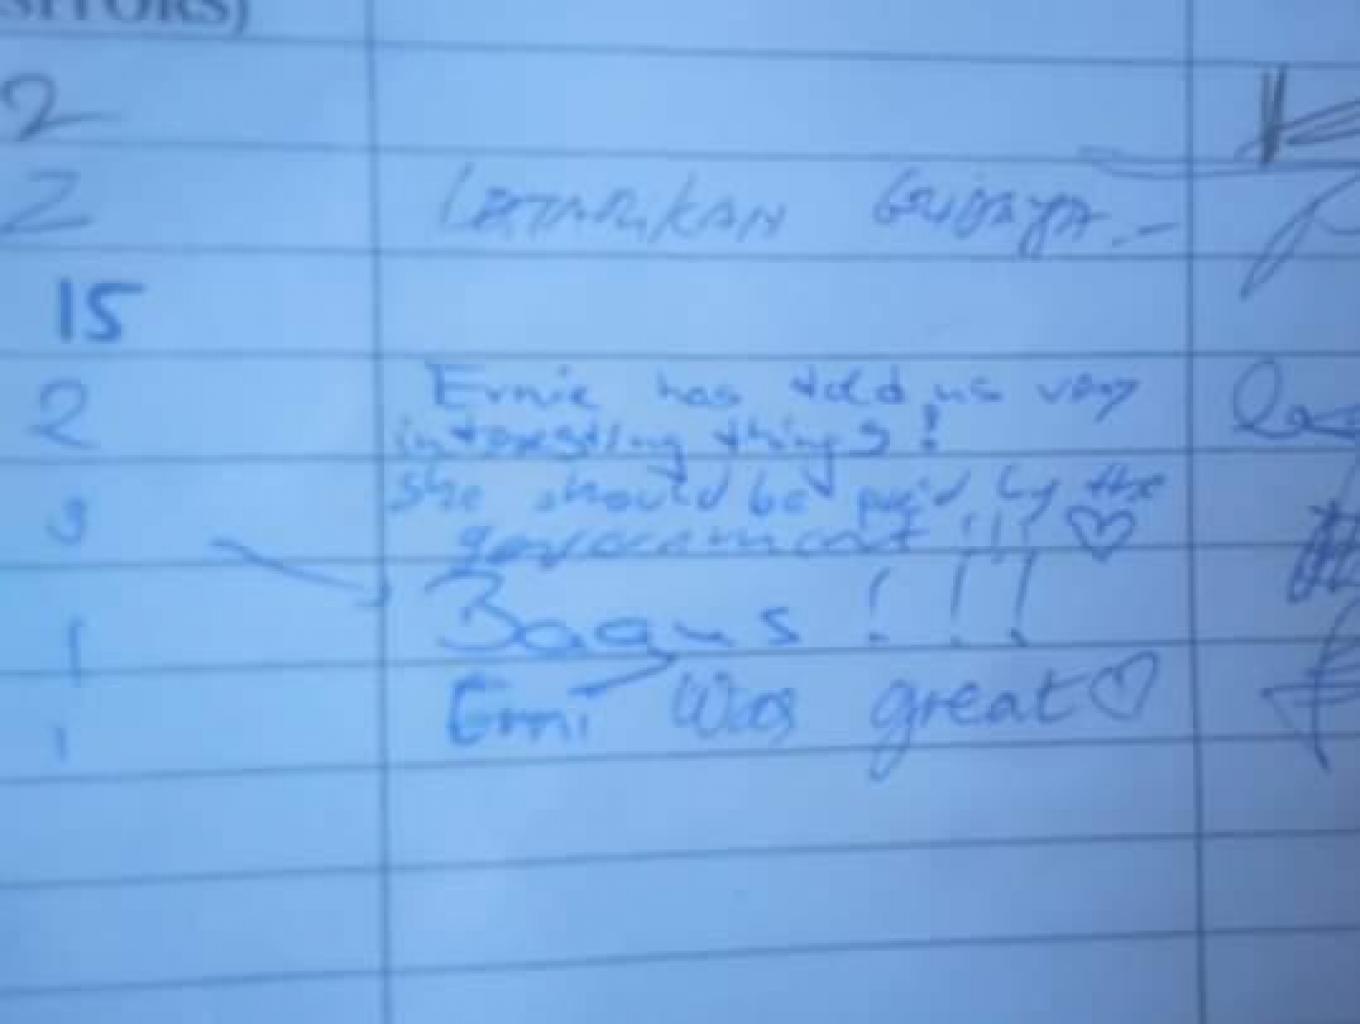 SITORS)
2
2 LESTARIKAN BUDAYA.-
15
2 Ernie has told us very
interesting things!
3 She should be paid by the
government!!! ♡
1 Bagus!!!
1 Erni was great ♡